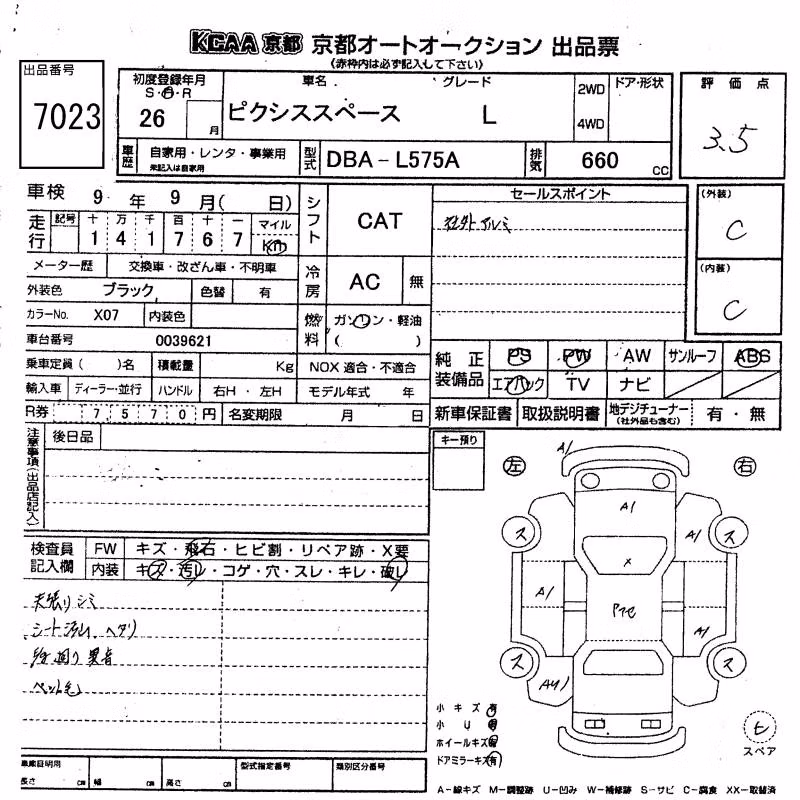 KCAA 京都 京都オートオークション 出品票
(赤枠内は必ず記入して下さい)
出品番号
7023
初度登録年月
S・H・R
26
月
車名
グレード
ピクシススペース L
2WD
4WD
ドア・形状
評価点
3.5
車歴
自家用・レンタ・事業用
未記入は自家用
型式
DBA-L575A
排気
660 cc
車検 9年 9月( 日)
走行
記号 十 万 千 百 十 一
1 4 1 7 6 7
マイル
Km
シフト
CAT
セールスポイント
社外アルミ
(外装)
C
(内装)
C
メーター歴 交換車・改ざん車・不明車
冷房
AC
無
外装色 ブラック 色替 有
カラーNo. X07 内装色
燃料
ガソリン・軽油
( )
車台番号 0039621
乗車定員( )名 積載量 Kg
NOX 適合・不適合
輸入車 ディーラー・並行 ハンドル 右H・左H
モデル年式 年
純正装備品
PS PW AW サンルーフ ABS
エアバック TV ナビ
R券 7570円 名変期限 月 日
新車保証書 取扱説明書 地デジチューナー 有・無
(社外品も含む)
注意事項(出品店記入)
後日品
キー預り
左
右
検査員記入欄
FW キズ・飛石・ヒビ割・リペア跡・X要
内装 キズ・汚レ・コゲ・穴・スレ・キレ・破レ
天張りシミ
シート汚レ ヘタリ
異音
ペット毛
A1
A1
A1
ス
ス
x
A1
A1
ス
ス
小キズ有
小U有
ホイールキズ有
ドアミラーキズ有
スペア
車庫証明用
長さ cm 幅 cm 高さ cm
型式指定番号
類別区分番号
A-線キズ M-調整跡 U-凹み W-補修跡 S-サビ C-腐食 XX-取替済